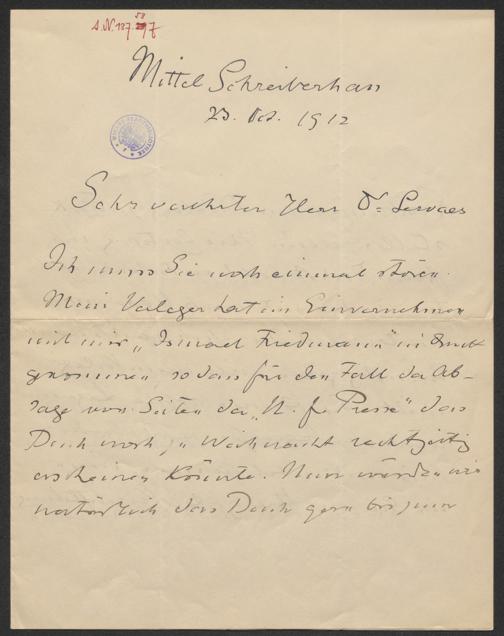 Mittel Schreiberhau
23. Oct. 1912
Sehr verehrter Herr Dr Servaes
Ich muss Sie noch einmal stören.
Mein Verleger hat im Einvernehmen
mit mir „Ismael Friedmann" in Druck
genommen, so dass für den Fall der Ab-
sage von Seiten der „N. fr. Presse" das
Buch noch zu Weihnacht rechtzeitig
erscheinen könnte. Nun würden wir
natürlich das Buch gern bis zum